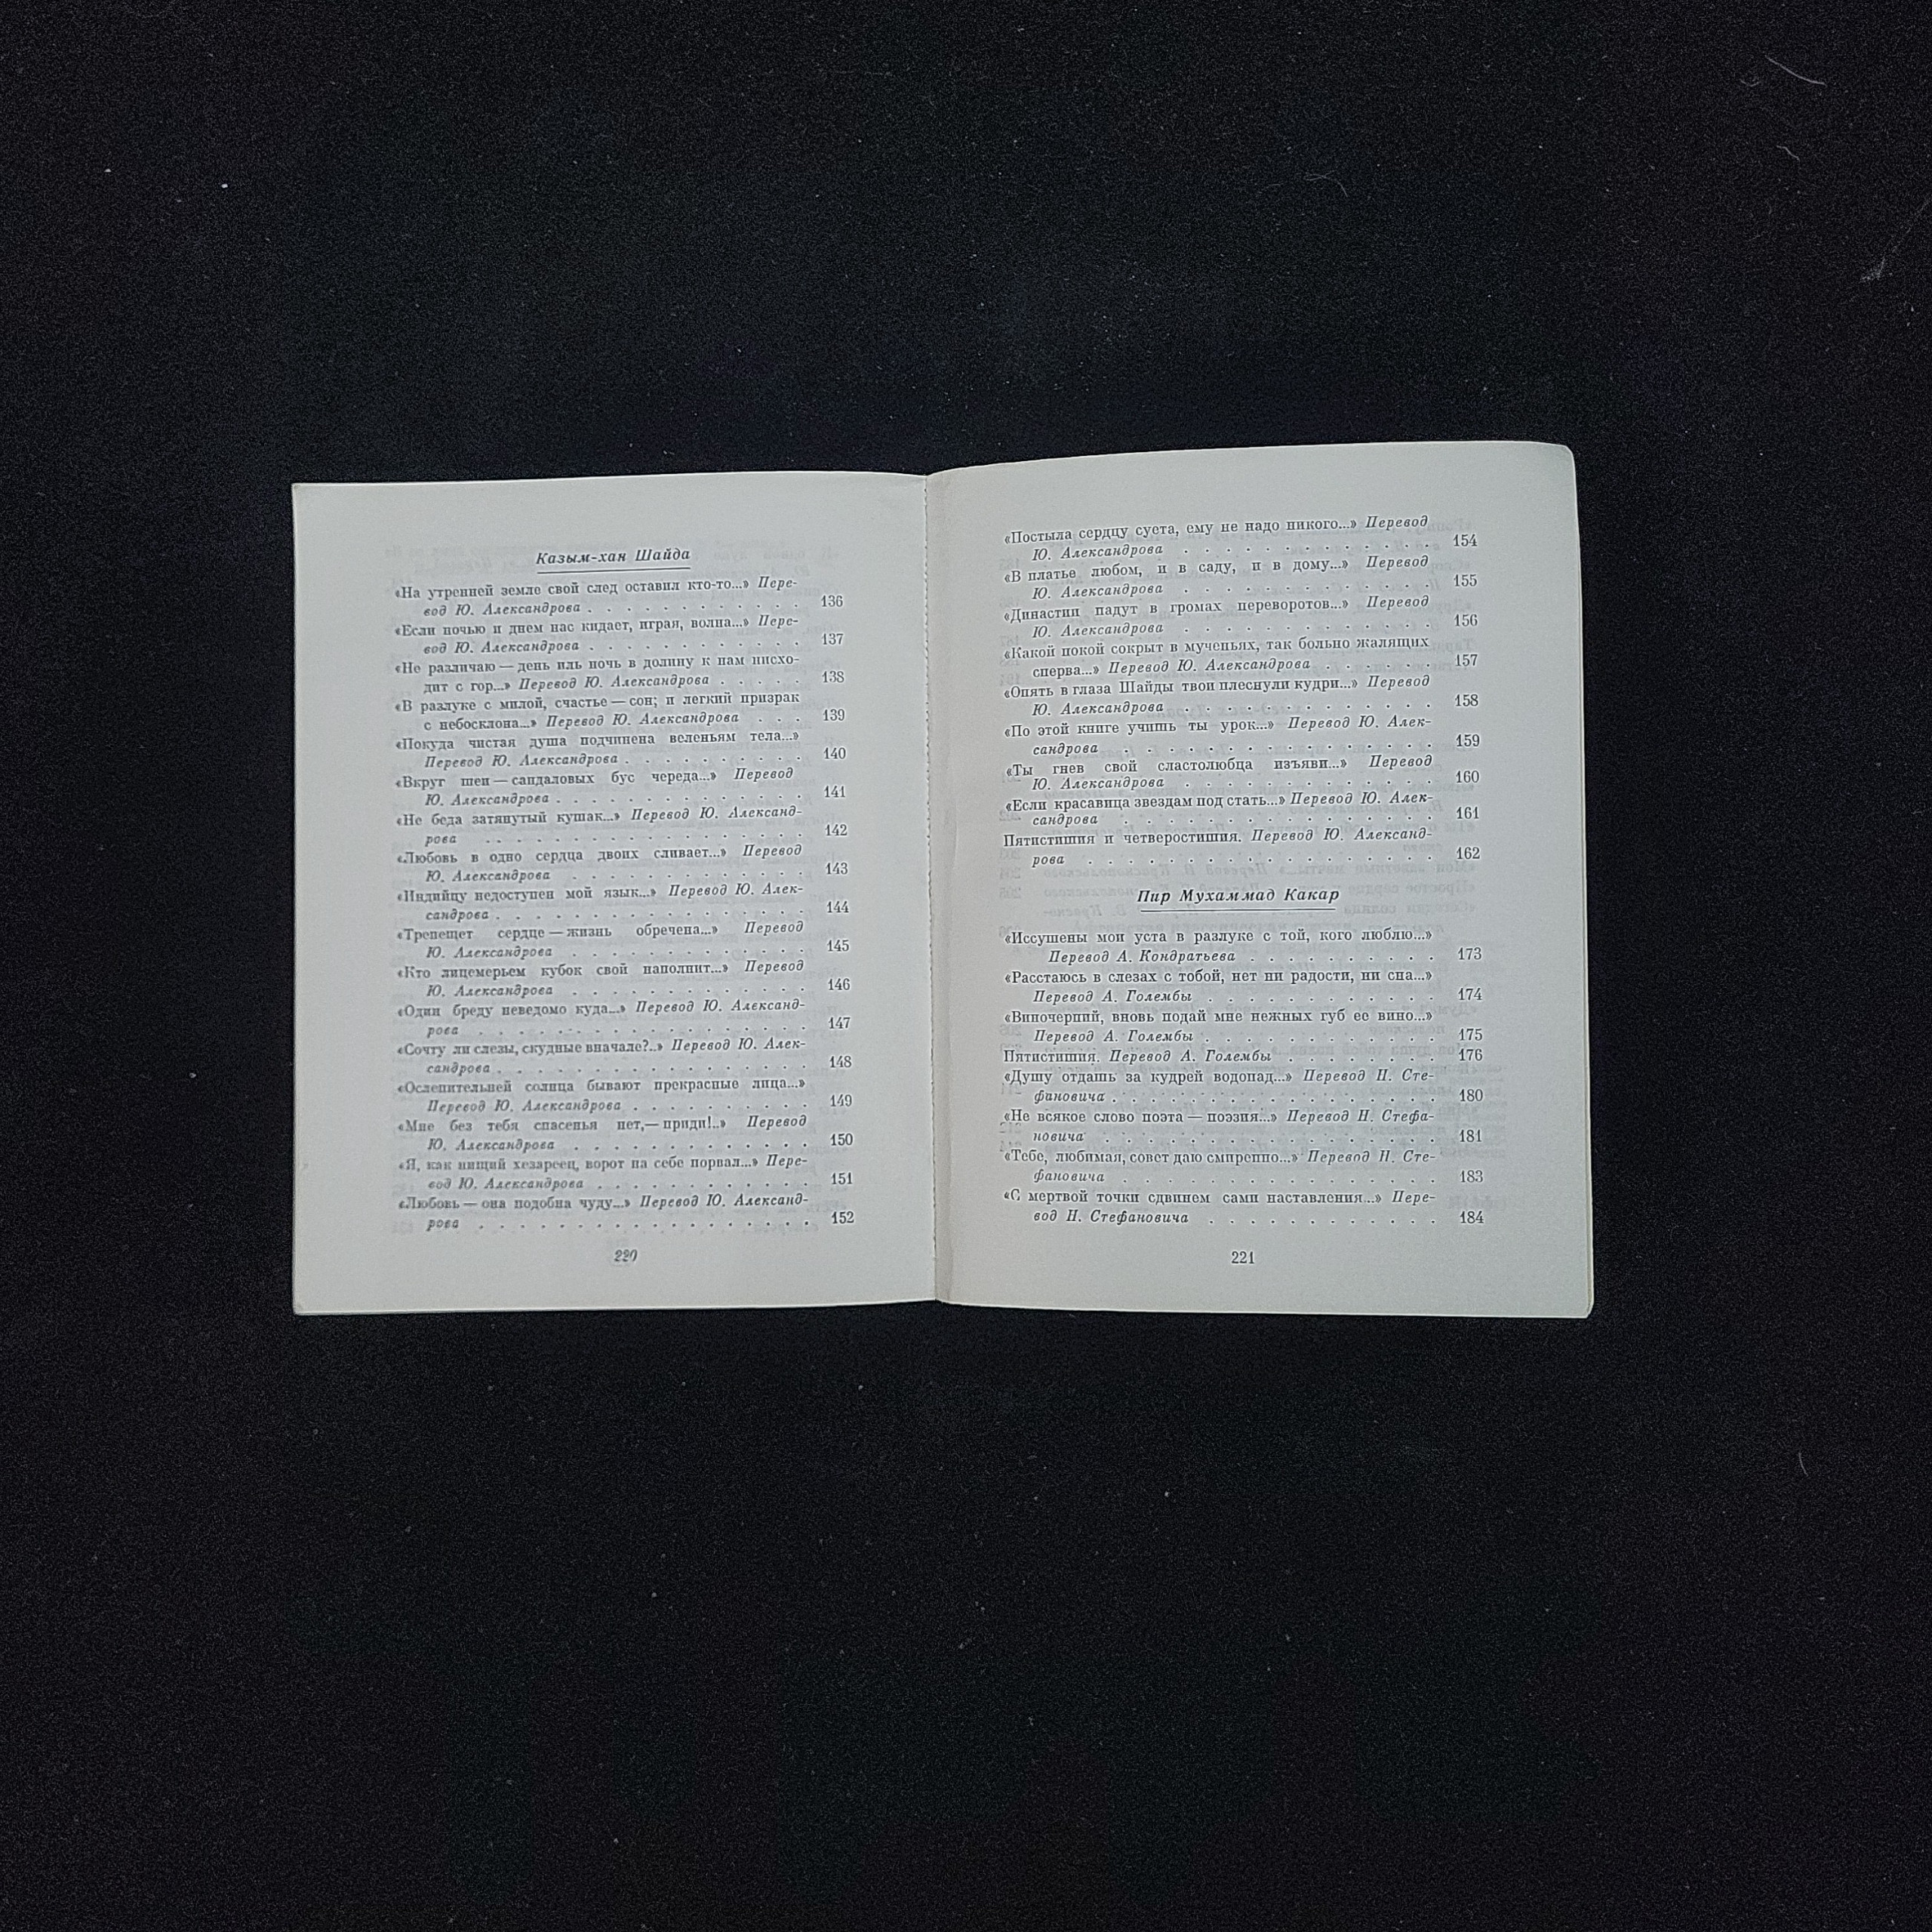 Казым-хан Шайда
«На утренней земле свой след оставил кто-то...» Пере-
вод Ю. Александрова . . . . . . . . . . . 136
«Если ночью и днем нас кидает, играя, волна...» Пере-
вод Ю. Александрова . . . . . . . . . . . 137
«Не различаю — день иль ночь в долину к нам нисхо-
дит с гор...» Перевод Ю. Александрова . . . . . 138
«В разлуке с милой, счастье — сон; и легкий призрак
с небосклона...» Перевод Ю. Александрова . . . 139
«Покуда чистая душа подчинена веленьям тела...»
Перевод Ю. Александрова . . . . . . . . . 140
«Вкруг шеи — сандаловых бус череда...» Перевод
Ю. Александрова . . . . . . . . . . . . . 141
«Не беда затянутый кушак...» Перевод Ю. Александ-
рова . . . . . . . . . . . . . . . . . 142
«Любовь в одно сердца двоих сливает...» Перевод
Ю. Александрова . . . . . . . . . . . . 143
«Индийцу недоступен мой язык...» Перевод Ю. Алек-
сандрова . . . . . . . . . . . . . . . . 144
«Трепещет сердце — жизнь обречена...» Перевод
Ю. Александрова . . . . . . . . . . . . 145
«Кто лицемерьем кубок свой наполнит...» Перевод
Ю. Александрова . . . . . . . . . . . . 146
«Один бреду неведомо куда...» Перевод Ю. Александ-
рова . . . . . . . . . . . . . . . . . 147
«Сочту ли слезы, скудные вначале?..» Перевод Ю. Алек-
сандрова . . . . . . . . . . . . . . . . 148
«Ослепительней солнца бывают прекрасные лица...»
Перевод Ю. Александрова . . . . . . . . . 149
«Мне без тебя спасенья нет,— приди!..» Перевод
Ю. Александрова . . . . . . . . . . . . 150
«Я, как нищий хезареец, ворот на себе порвал...» Пере-
вод Ю. Александрова . . . . . . . . . . . 151
«Любовь — она подобна чуду...» Перевод Ю. Александ-
рова . . . . . . . . . . . . . . . . . 152
220
«Постыла сердцу суета, ему не надо никого...» Перевод
Ю. Александрова . . . . . . . . . . . . . 154
«В платье любом, и в саду, и в дому...» Перевод
Ю. Александрова . . . . . . . . . . . . . 155
«Династии падут в громах переворотов...» Перевод
Ю. Александрова . . . . . . . . . . . . . 156
«Какой покой сокрыт в мученьях, так больно жалящих
сперва...» Перевод Ю. Александрова . . . . . . 157
«Опять в глаза Шайды твои плеснули кудри...» Перевод
Ю. Александрова . . . . . . . . . . . . . 158
«По этой книге учишь ты урок...» Перевод Ю. Алек-
сандрова . . . . . . . . . . . . . . . . 159
«Ты гнев свой сластолюбца изъяви...» Перевод
Ю. Александрова . . . . . . . . . . . . . 160
«Если красавица звездам под стать...» Перевод Ю. Алек-
сандрова . . . . . . . . . . . . . . . . 161
Пятистишия и четверостишия. Перевод Ю. Александ-
рова . . . . . . . . . . . . . . . . . . 162
Пир Мухаммад Какар
«Иссушены мои уста в разлуке с той, кого люблю...»
Перевод А. Кондратьева . . . . . . . . . . 173
«Расстаюсь в слезах с тобой, нет ни радости, ни сна...»
Перевод А. Голембы . . . . . . . . . . . . 174
«Виночерпий, вновь подай мне нежных губ ее вино...»
Перевод А. Голембы . . . . . . . . . . . . 175
Пятистишия. Перевод А. Голембы 176
«Душу отдашь за кудрей водопад...» Перевод Н. Сте-
фановича . . . . . . . . . . . . . . . . . 180
«Не всякое слово поэта — поэзия...» Перевод Н. Стефа-
новича . . . . . . . . . . . . . . . . . 181
«Тебе, любимая, совет даю смиренно...» Перевод Н. Сте-
фановича . . . . . . . . . . . . . . . . 183
«С мертвой точки сдвинем сами наставления...» Пере-
вод Н. Стефановича . . . . . . . . . . . . 184
221